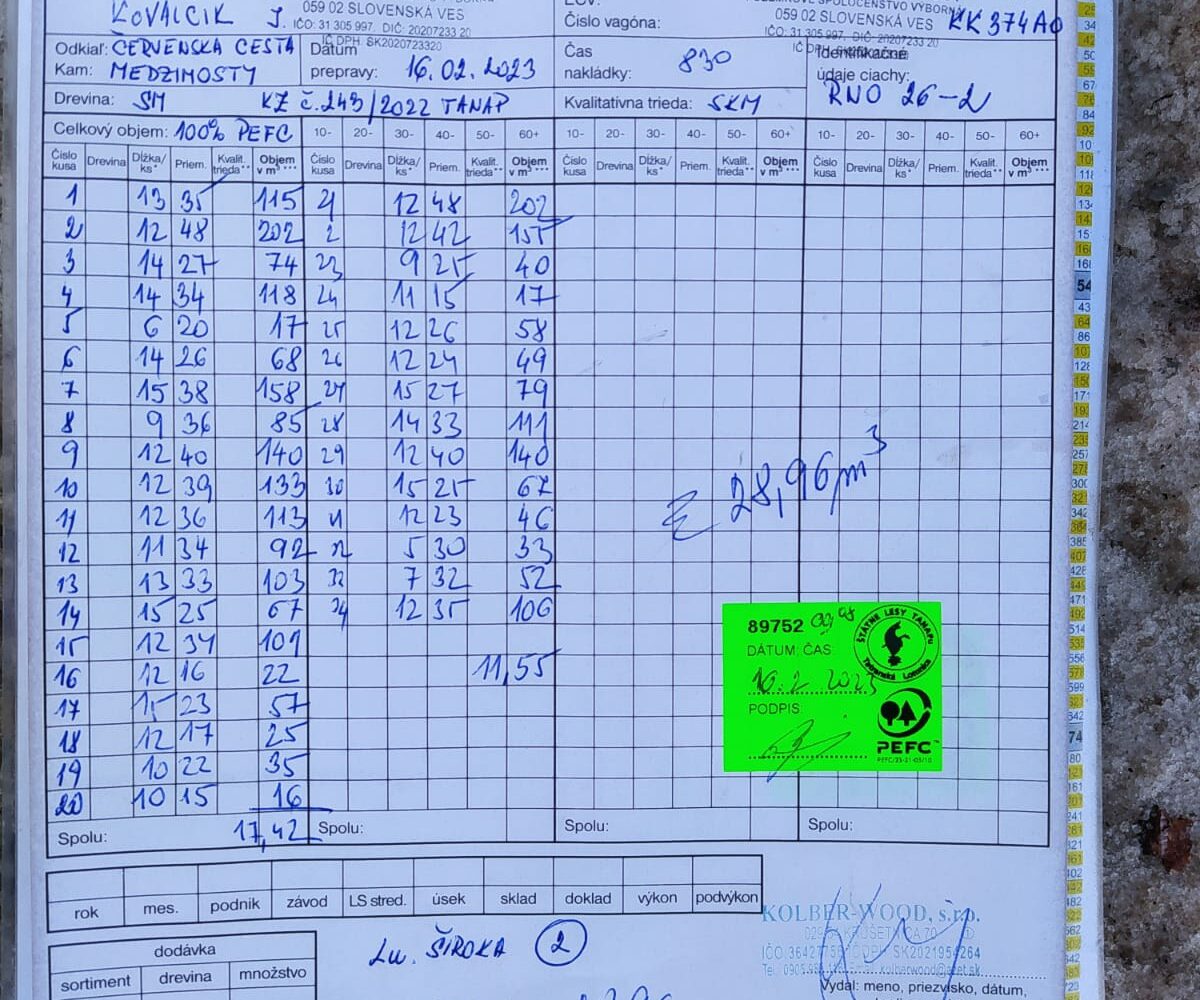 KOVALČIK J. 059 02 SLOVENSKÁ VES
IČO: 31 305 997, DIČ: 20207233 20
IČ DPH: SK2020723320
Číslo vagóna: KK374AO
059 02 SLOVENSKÁ VES
IČO: 31 305 997, DIČ: 20207233 20
Odkiaľ: ČERVENSKA CESTA
Kam: MEDZIMOSTY
Dátum prepravy: 16.02.2023
Čas nakládky: 830
Identifikačné údaje ciachy: RNO 26-2
Drevina: SM KZ č.243/2022 TANAP
Kvalitatívna trieda: SKM
Celkový objem: 100% PEFC 10- 20- 30- 40- 50- 60+ 10- 20- 30- 40- 50- 60+ 10- 20- 30- 40- 50- 60+
Číslo kusa Drevina Dĺžka/ks* Priem. Kvalit. trieda** Objem v m³ *** Číslo kusa Drevina Dĺžka/ks* Priem. Kvalit. trieda** Objem v m³ *** Číslo kusa Drevina Dĺžka/ks* Priem. Kvalit. trieda** Objem v m³ *** Číslo kusa Drevina Dĺžka/ks* Priem. Kvalit. trieda** Objem v m³ ***
1 13 35 115 21 12 48 202
2 12 48 202 2 12 42 155
3 14 27 74 23 9 25 40
4 14 34 118 24 11 15 17
5 6 20 17 25 12 26 58
6 14 26 68 26 12 24 49
7 15 38 158 27 15 27 79
8 9 36 85 28 14 33 111
9 12 40 140 29 12 40 140
10 12 39 133 30 15 25 67
11 12 36 113 31 12 23 46
12 11 34 92 32 5 30 33
13 13 33 103 33 7 32 52
14 15 25 67 34 12 35 106
15 12 34 101
16 12 16 22 11,55
17 15 23 57
18 12 17 25
19 10 22 35
20 10 15 16
Σ 28,96 m³
89752
DÁTUM, ČAS:
16.2 2023
PODPIS:
ŠTÁTNE LESY TANAPu
Tatranská Lomnica
PEFC
Spolu: 17,42 Spolu: Spolu: Spolu:
rok mes. podnik závod LS stred. úsek sklad doklad výkon podvýkon
KOLBER-WOOD, s.r.o.
dodávka
sortiment drevina množstvo
Lw. ŠIROKA 2
Vydal: meno, priezvisko, dátum,